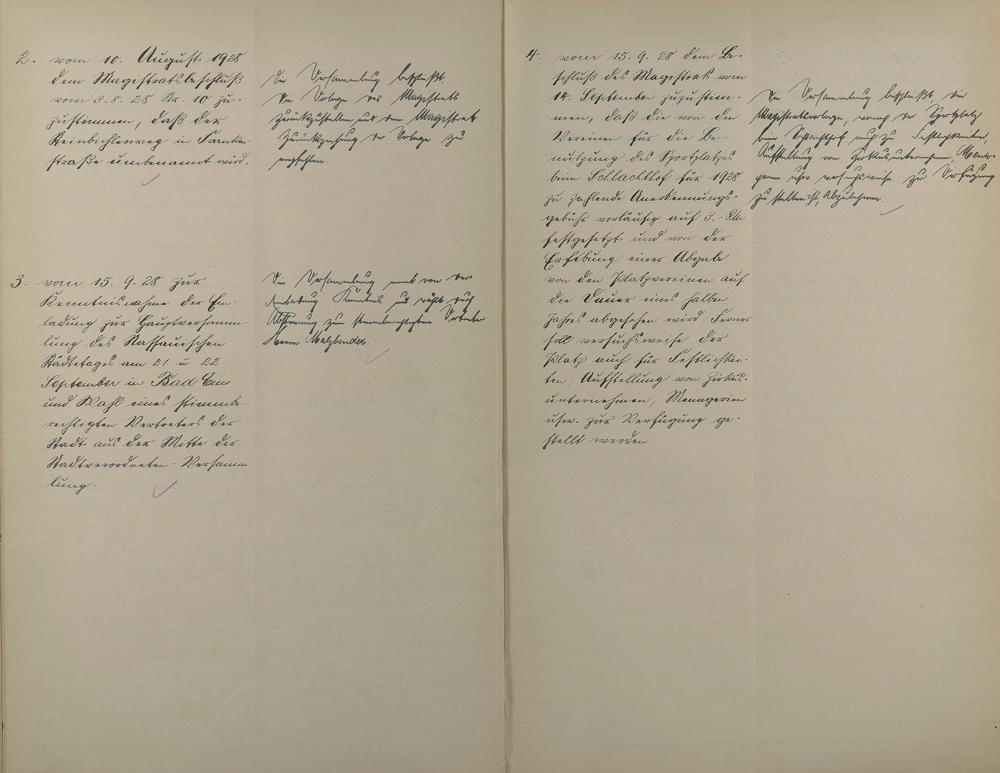 2. vom 10. August 1928
dem Magistratsbeschluß
vom 3.8.28 Nr. 10 zu-
zustimmen, daß der
in
straße umbenannt wird.
Die Versammlung beschließt
die Vorlage des Magistrats
zurückzustellen und dem Magistrat
Zurückziehung der Vorlage zu
empfehlen.
3. vom 15.9.28 zur
Kenntnisnahme der Ein-
ladung zur Hauptversamm-
lung des Nassauischen
Städtetages am 21 u 22
September in Bad Ems
und Wahl eines stimmbe-
rechtigten Vertreters der
Stadt aus der Mitte der
Stadtverordneten-Versamm
lung.
Die Versammlung nimmt von der
Einladung Kenntnis und wählt durch
Abstimmung zum stimmberechtigten Vertreter
Herrn
4. vom 15.9.28 dem Be-
schluß des Magistrats vom
14. September zuzustim-
men, daß die von den
Vereinen für die Be-
nützung des Sportplatzes
beim Schlachthof für 1928
zu zahlende Anerkennungs-
gebühr vorläufig auf 3.-
festgesetzt und von der
Erhebung einer Abgabe
von den Platzvereinen auf
die Dauer eines halben
Jahres abgesehen wird. Ferner
soll versuchsweise der
Platz auch für Festlichkei-
ten, Aufstellung von Zirkus-
unternehmen, Menagerien
usw. zur Verfügung ge-
stellt werden.
Die Versammlung beschließt die
Magistratsvorlage, wonach der Sportplatz
beim Schlachthof auch zu Festlichkeiten,
Aufstellung von Zirkusunternehmen, Mena-
gerien usw versuchsweise zur Verfügung
zu stellen ist, abzulehnen.